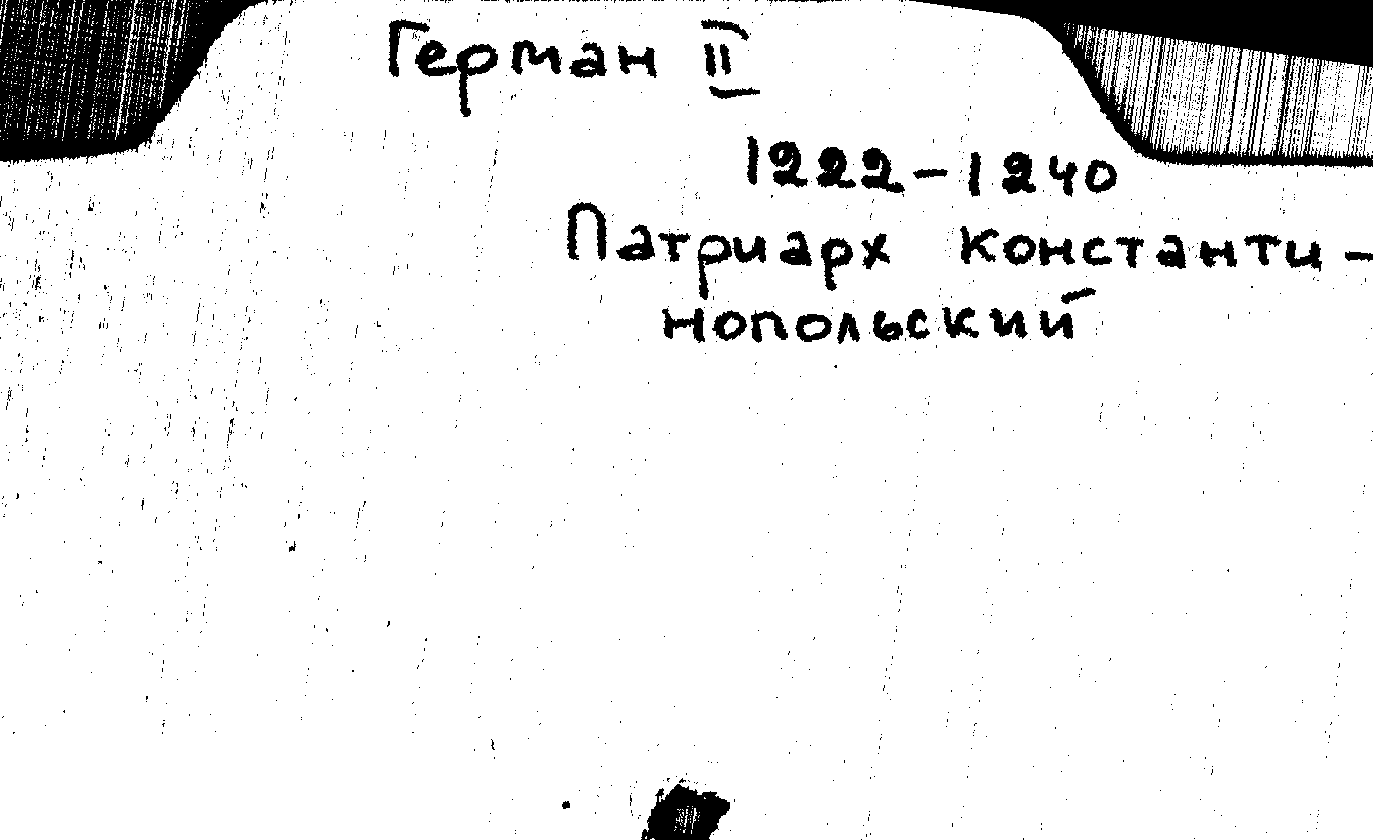 Герман II
1222-1240
Патриарх Константи-
нопольский